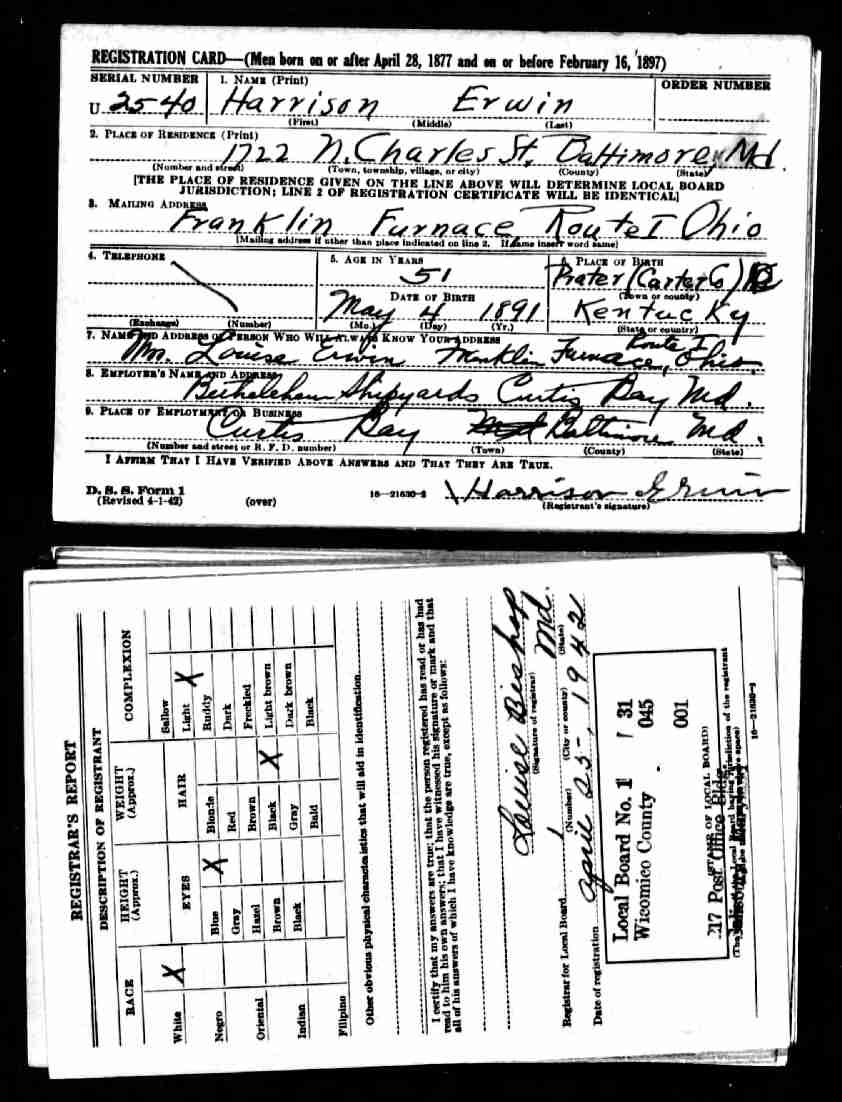 REGISTRATION CARD—(Men born on or after April 28, 1877 and on or before February 16, 1897)
SERIAL NUMBER 1. NAME (Print) ORDER NUMBER
U 2540 Harrison Erwin
(First) (Middle) (Last)
2. PLACE OF RESIDENCE (Print)
1722 N. Charles St. Baltimore, Md.
(Number and street) (Town, township, village, or city) (County) (State)
[THE PLACE OF RESIDENCE GIVEN ON THE LINE ABOVE WILL DETERMINE LOCAL BOARD
JURISDICTION; LINE 2 OF REGISTRATION CERTIFICATE WILL BE IDENTICAL]
3. MAILING ADDRESS
Franklin Furnace, Route I Ohio
[Mailing address if other than place indicated on line 2. If same insert word same]
4. TELEPHONE 5. AGE IN YEARS 6. PLACE OF BIRTH
51 Prater (Carter Co)
DATE OF BIRTH (Town or county)
May 4 1891 Kentucky
(Exchange) (Number) (Mo.) (Day) (Yr.) (State or country)
7. NAME AND ADDRESS OF PERSON WHO WILL ALWAYS KNOW YOUR ADDRESS Route I
Mrs. Louise Erwin Franklin Furnace, Ohio
8. EMPLOYER'S NAME AND ADDRESS
Bethelehem Shipyards Curtis Bay Md.
9. PLACE OF EMPLOYMENT OR BUSINESS
Curtis Bay Baltimore Md.
(Number and street or R. F. D. number) (Town) (County) (State)
I AFFIRM THAT I HAVE VERIFIED ABOVE ANSWERS AND THAT THEY ARE TRUE.
D. S. S. Form 1
(Revised 4-1-42) (over) 16—21630-2 Harrison Erwin
(Registrant's signature)
REGISTRAR'S REPORT
DESCRIPTION OF REGISTRANT
RACE HEIGHT (Approx.) WEIGHT (Approx.) COMPLEXION
EYES HAIR
White X Blue X Blonde Sallow
Light X
Negro Gray Red Ruddy
Hazel Brown Dark
Oriental Freckled
Brown Black X Light brown
Indian Black Gray Dark brown
Filipino Bald Black
Other obvious physical characteristics that will aid in identification
I certify that my answers are true; that the person registered has read or has had
read to him his own answers; that I have witnessed his signature or mark and that
all of his answers of which I have knowledge are true, except as follows:
Louise Bishop
(Signature of registrar)
Registrar for Local Board 1 Md.
(Number) (City or county) (State)
Date of registration April 25-, 1942
Local Board No. 1 31
Wicomico County 045
001
217 Post Office Bldg.
(STAMP OF LOCAL BOARD)
16—21630-2